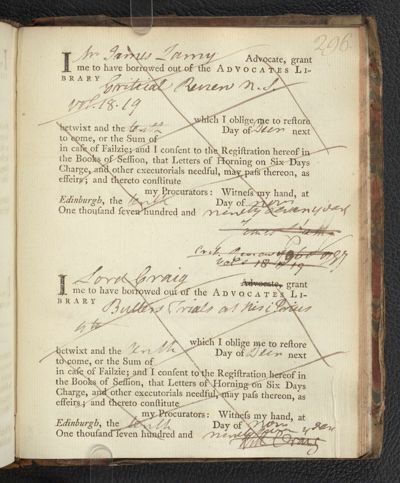 296.
I Mr James Jamy Advocate, grant
me to have borrowed out of the ADVOCATES LI-
BRARY Critical Review N.S
Vol. 18. 19
which I oblige me to reſtore
betwixt and the tenth Day of Decr next
to come, or the Sum of
in caſe of Failzie; and I conſent to the Regiſtration hereof in
the Books of Seſſion, that Letters of Horning on Six Days
Charge, and other executorials needful, may paſs thereon, as
effeirs; and thereto conſtitute
my Procurators: Witneſs my hand, at
Edinburgh, the tenth Day of Novr
One thouſand ſeven hundred and ninety Seven years
Vol. 18 19
I Lord Craig Advocate, grant
me to have borrowed out of the ADVOCATES LI-
BRARY Butlers Trials at
4to
which I oblige me to reſtore
betwixt and the tenth Day of Decr next
to come, or the Sum of
in caſe of Failzie; and I conſent to the Regiſtration hereof in
the Books of Seſſion, that Letters of Horning on Six Days
Charge, and other executorials needful, may paſs thereon, as
effeirs; and thereto conſtitute
my Procurators: Witneſs my hand, at
Edinburgh, the tenth Day of Novr
One thouſand ſeven hundred and ninety years
Will Craig